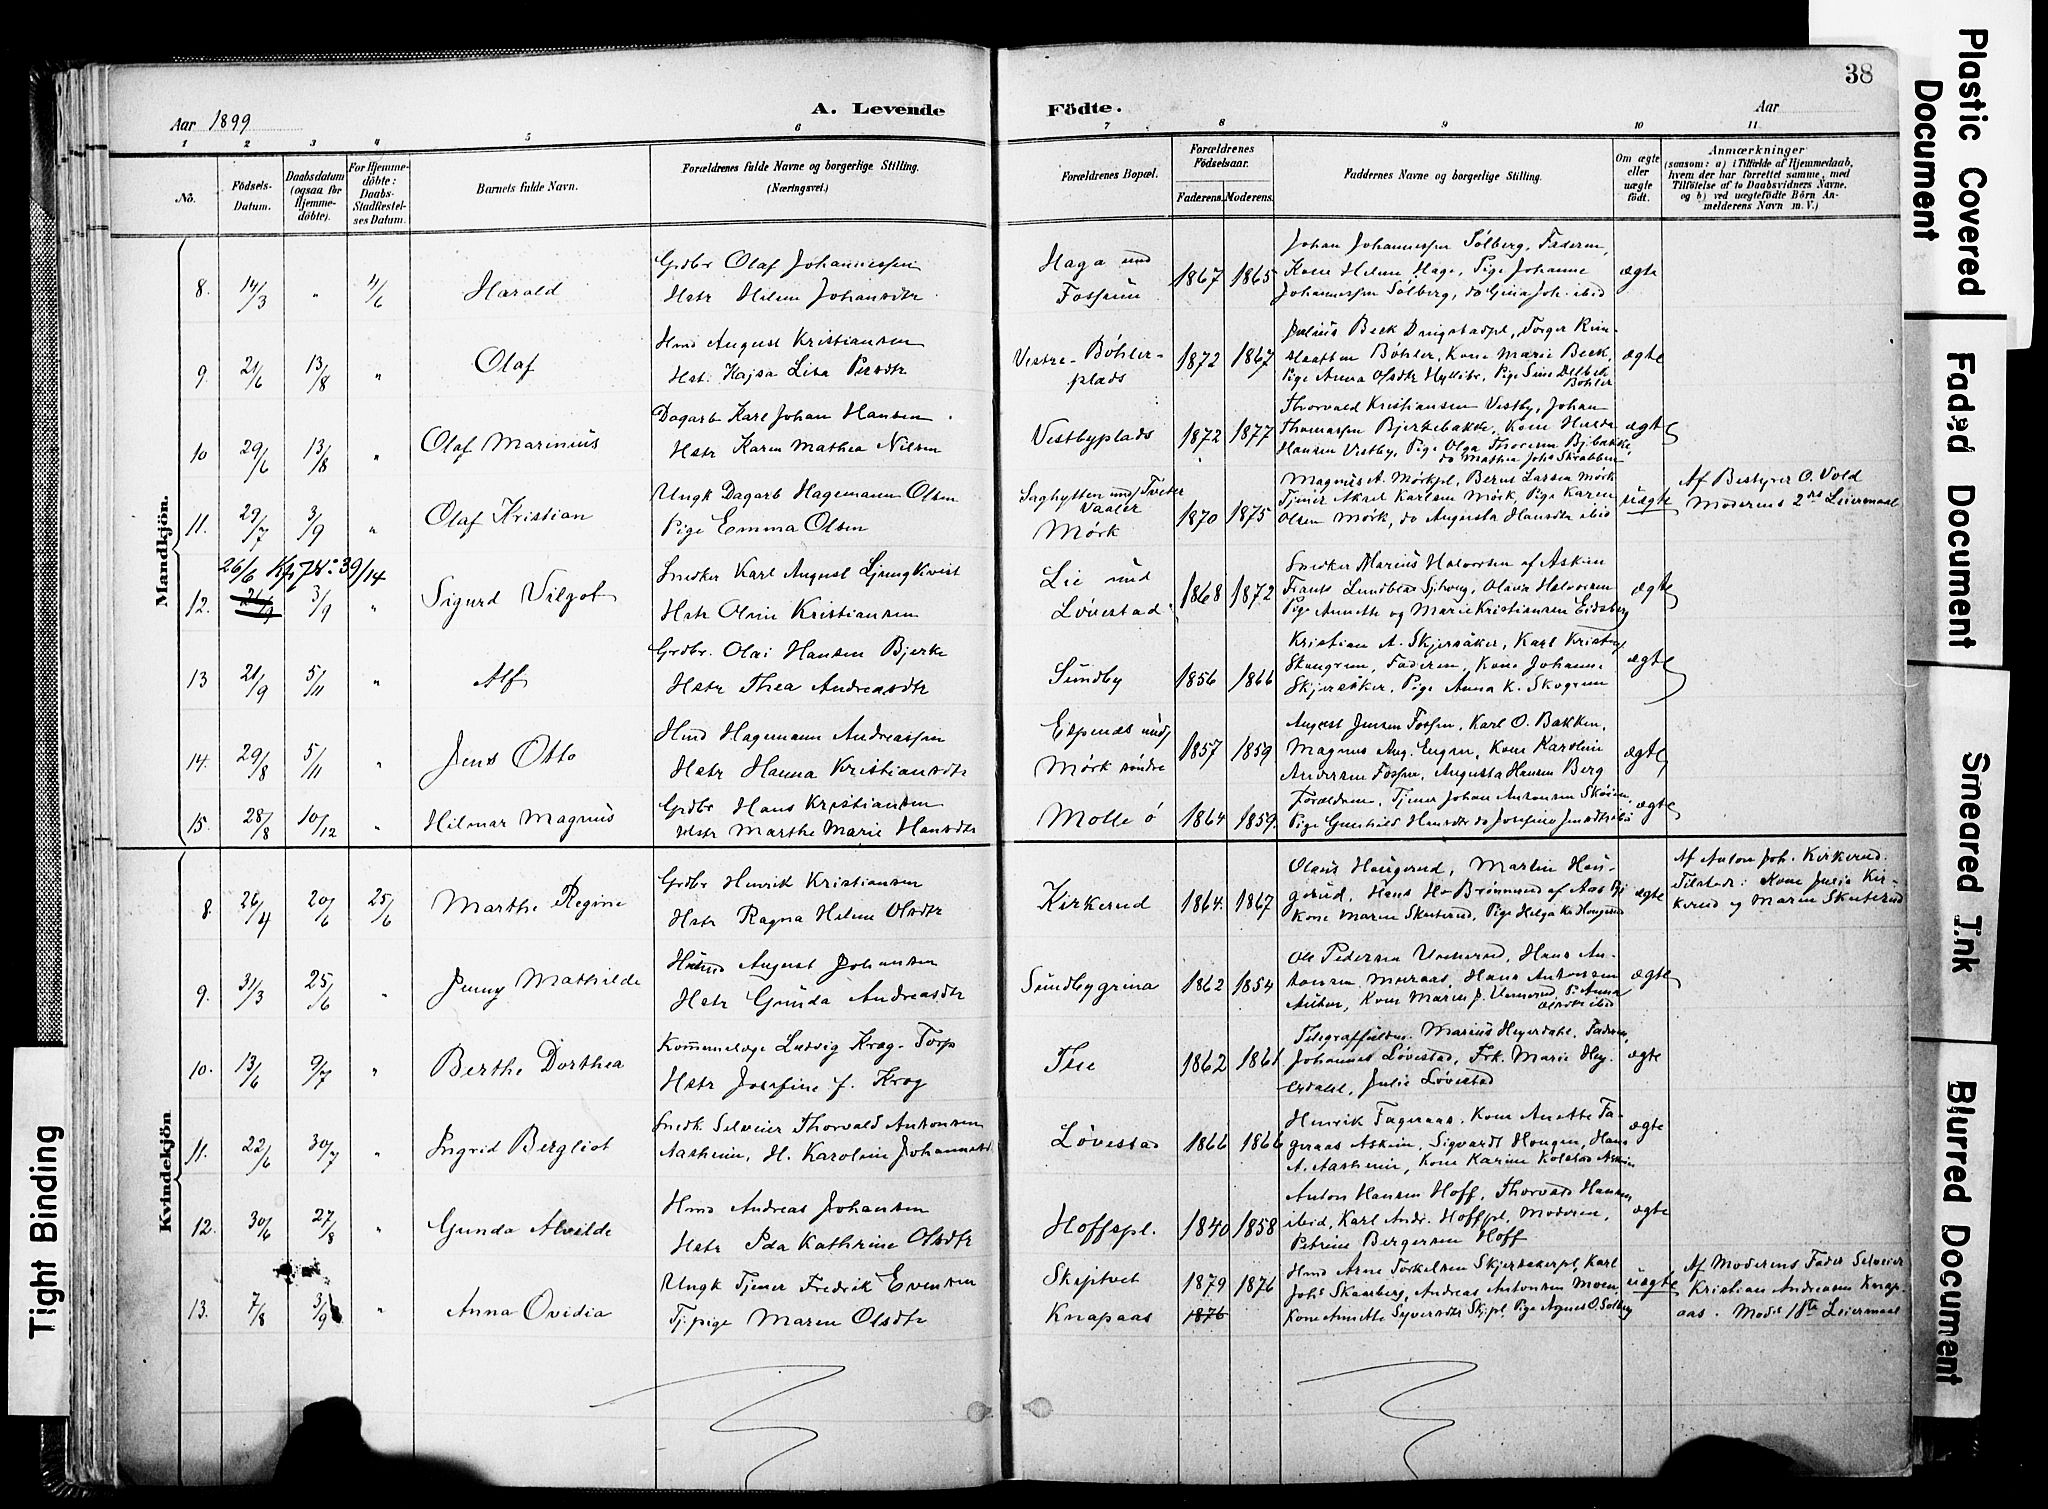 38
Aar 1899
A. Levende
Födte.
Aar
1 2 3 4 5 6 7 8 9 10 11
No.
Födsels-
Datum.
Daabsdatum
(ogsaa for
Hjemme-
döbte).
For Hjemme-
döbte:
Daabs-
Stadfæstel-
ses Datum.
Barnets fulde Navn.
Forældrenes fulde Navne og borgerlige Stilling.
(Næringsvei.)
Forældrenes Bopæl.
Forældrenes
Födselsaar.
Faderens. Moderens.
Faddernes Navne og borgerlige Stilling.
Om ægte
eller
uægte
födt.
Anmærkninger
(saasom: a) i Tilfælde af Hjemmedaab,
hvem der har forrettet samme, med
Tilföielse af to Daabsvidners Navne.
og b) ved uægtefödte Börn An-
melderens Navn m. V.)
Mandkjön.
8. 14/3 " 4/6 Harald
Grdbr Olaf Johannessen
Hstr Helene Johansdtr
Haga und
Fossum
1867 1865
Johan Johannessen Sølberg, Faderen,
Kone Helene Haga, Pige Johanne
Johannessen Sølberg, do Gina Joh. ibid
ægte
9. 21/6 13/8 " Olaf
Hmd August Kristiansen
Hst. Kajsa Lisa Persdtr
Vestre-Bøhler-
plads
1872 1867
Julius Beck
Bøhler, Kone Marie Beck,
Pige Anna Olsdtr
Bøhler
ægte
10 29/6 13/8 " Olaf Marinius
Dagarb Karl Johan Hansen
Hstr Karen Mathea Nilsen
Vestbyplads
1872 1877
Thorvald Kristiansen Vestby, Johan
Thomassen Bjerkebakke, Kone Hulda
Hansen Vestby, Pige Olga
do Mathea Johs
ægte
11. 29/7 3/9 " Olaf Kristian
Ungk Dagarb Hagemann Olsen
Pige Emma Olsen
Saghytten und Tveter
Vaaler
Mørk
1870 1875
Magnus A. Mørkpl, Bernt Larsen Mørk
Tjener Aksel Karlsen Mørk, Pige Karen
Olsen Mørk, do Augusta Hansdtr ibid
uægte
Af Bestyrer O. Vold
Moderens 2det Leiermaal
26/6 Kfr J№ 39/14
12. 3/9 " Sigurd Vilgot
Snedker Karl August Ljungkvist
Hstr Oline Kristiansen
Lie und
Løvestad
1868 1872
Snedker Marius Halvorsen af Askim
Frants Lundblad Olava Halvorsen
Pige Annette og Marie Kristiansen Eidsberg
ægte
13 21/9 5/11 " Alf
Grdbr. Olai Hansen Bjerke
Hstr Thea Andreasdtr
Sundby
1856 1866
Kristian A. Skjersaker, Karl
Faderen, Kone Johanne
Skjersåker, Pige Anna K. Skogrun
ægte
14. 29/8 5/11 " Jens Otto
Hmd Hagemann Andreassen
Hstr Hanna Kristiansdtr
Espenæs und
Mørk søndre
1857 1859
August Jensen Fossen, Karl O. Bakken,
Magnus Aug. Engen, Kone Karoline
Andersen Fossen, Augusta Hansen Berg
ægte
15. 28/8 10/12 " Hilmar Magnus
Grdbr Hans Kristiansen
Hstr Marthe Marie Hansdtr
Molleø
1864 1859.
Forældrene, Tjener Johan Antonsen Skøien,
Pige Gunhild Hansdtr do Josefine Jensdtr ibid
ægte
Kvindekjön
8. 26/4 20/6 25/6 Marthe Regine
Grdbr Henrik Kristiansen
Hstr Ragna Helene Olsdtr
Kirkerud
1864. 1867
Olaus Haugerud, Martin Hau-
gerud, Hans H. Brønnerud af Aas
Kone Maren Skuterud, Pige Helga K. Haugerud
ægte
Af Anton Joh. Kirkerud.
Tilstede: Kone Julie Kir-
kerud og Maren Skuterud
9. 31/3 25/6 " Jenny Mathilde
Hmd August Johansen
Hstr Gunda Andreasdtr
Sundbygrina
1862 1854
Ole Pedersen Hans An-
tonsen Hans Antonsen
Kone Maren P. Anna
ibid
ægte
10. 13/6 9/7 " Berthe Dorthea
Kommunelæge Ludvig Krag-Torp
Hstr Josefine f. Krog
Thee
1862 1861
Marius Heyerdahl, Faderen,
Johannes Løvestad, Frk. Marie Hey-
erdahl, Julie Løvestad
ægte
11. 22/6 30/7 " Ingrid Bergliot
Snedk Selveier Thorvald Antonsen
Aasheim, H. Karoline Johannesd.
Løvestad
1866 1866
Henrik Fageraas, Kone Anette Fa-
geraas Askim, Sigvardt Haugen, Hans
A. Aasheim, Kone Karine Kolstad Askim
ægte
12. 30/6 27/8 " Gunda Alvilde
Hmd Andreas Johansen
Hstr Ida Kathrine Olsdtr
Hoffspl.
1840 1858
Anton Hansen Hoff, Thorvald Hansen
ibid, Karl Andr. Hoffpl, Moderen,
Petrine Bergersen Hoff
ægte
13. 7/8 3/9 " Anna Ovidia
Ungk Tjener Fredrik Evensen
Tj.pige Maren Olsdtr
Skiptvet
Knapaas
1879 1876
1876
Hmd Arne Torkelsen Skjersakerpl, Karl
Johs Skaarberg, Andreas Antonsen Moen
Kone Annette Syversdtr Skjpl, Pige Agnes O. Solberg
uægte
Af Moderens Fader Selveier
Kristian Andreasen Knap-
aas. Mods 1ste Leiermaal
Plastic Covered
Document
Faded Document
Smeared Ink
Blurred Document
Tight Binding